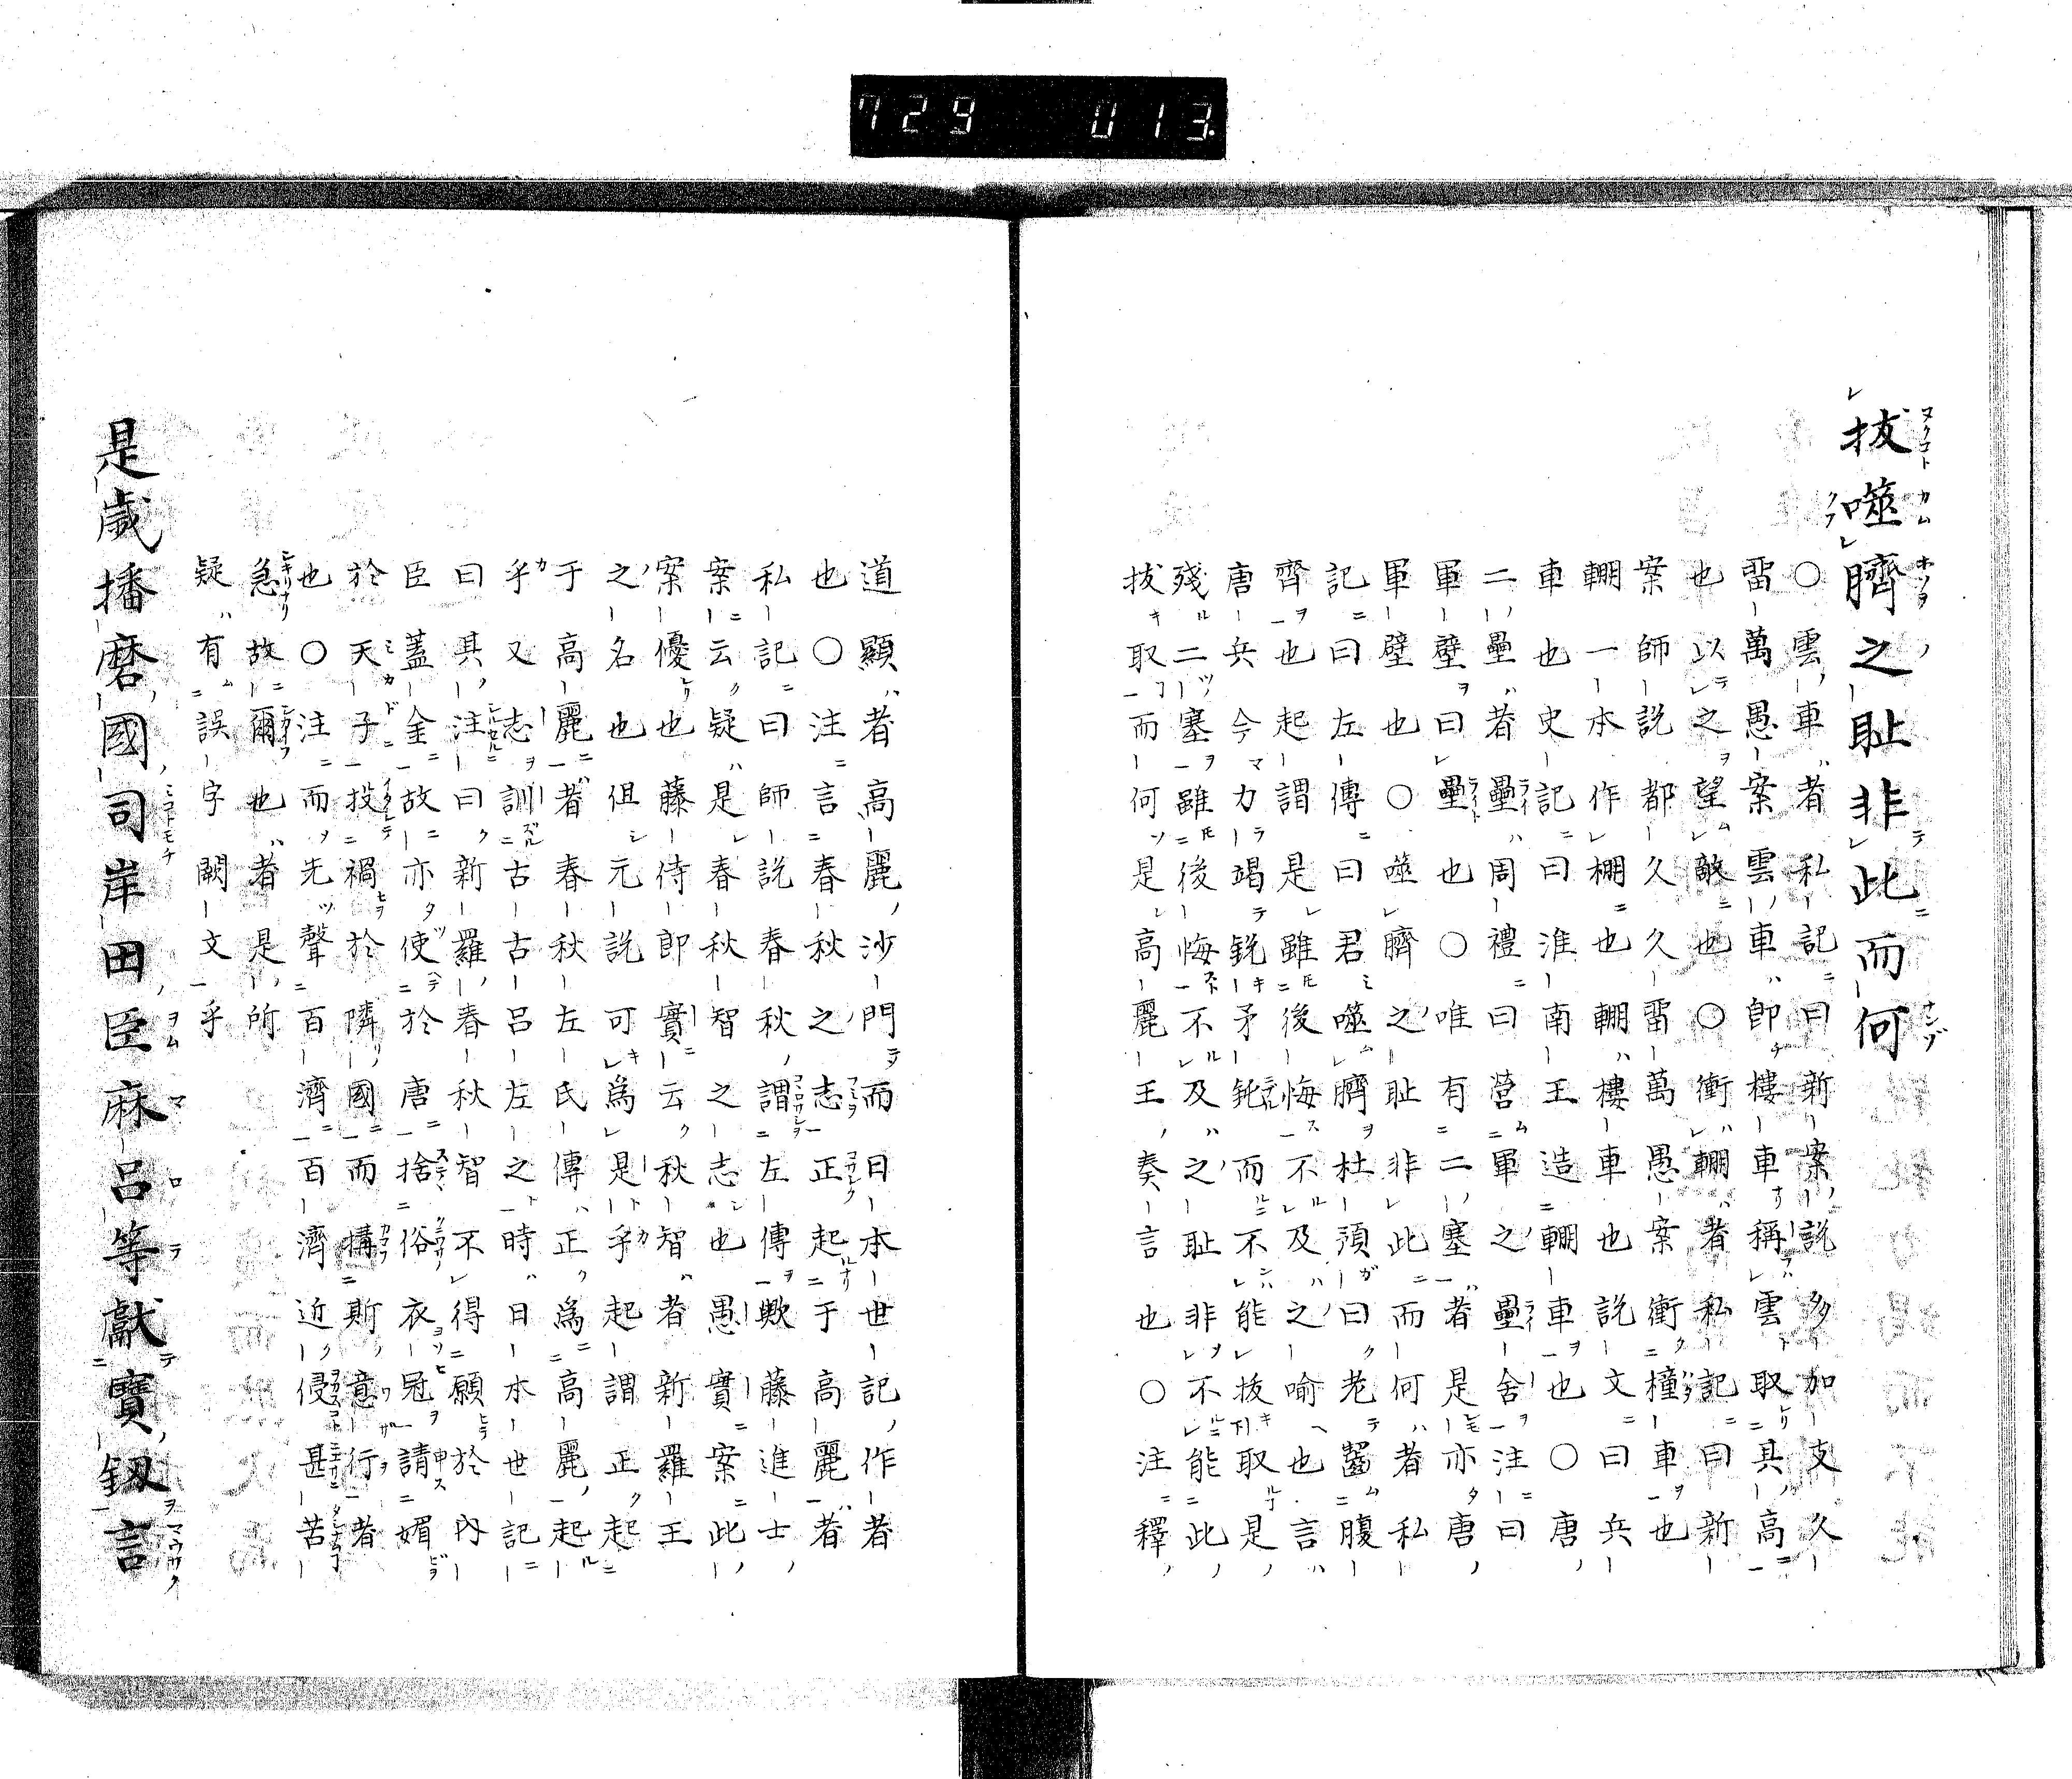 729 013
拔噬臍之耻非此而何
○雲車者私記曰新案說多加支久
畱萬愚案雲車即樓車稱雲取其高
也以之望敵也○衝輣者私記曰新
案師說都久久畱萬愚案衝橦車也
輣一本作棚也輣樓車也說文曰兵
車也史記曰淮南王造輣車也○唐
二壘者壘周禮曰營軍之壘舍注曰
軍壁曰壘也○唯有二塞者是亦唐
軍壁也○噬臍之耻非此而何者私
記曰左傳曰君噬臍杜預曰老齧腹
齊也起謂是雖後悔不及之喻也言
唐兵今力竭銳矛鈋而不能拔取是
殘二塞雖後悔不及之耻非不能此
拔取而何是高麗王奏言也○注釋
道顯者高麗沙門而日本世記作者
也○注言春秋之志正起于高麗者
私記曰師說春秋謂左傳歟藤進士
案云疑是春秋智之志也愚實案此
案優也藤侍郎實云秋智者新羅王
之名也但元說可爲是乎起謂正起
于高麗者春秋左氏傳正爲高麗起
乎又志訓古古呂左之時日本世記
曰其注曰新羅春秋智不得願於內
臣蓋金故亦使於唐捨俗衣冠請媚
於天子投禍於隣國而搆斯意行者
也○注而先聲百濟百濟近侵甚苦
急故爾也者是所
疑有誤字闕文乎
是歲播磨國司岸田臣麻呂等獻寶釼言